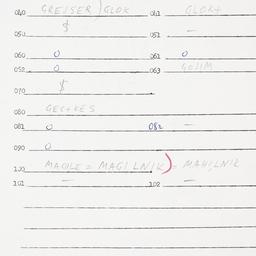 040 GREISER / GLOK 041 GLOK+
050 $ 051 —
060 0 061 0
052 0 063 GOIIM
070 $
080 GEC+KES
081 0 082 —
090 0
100 MAOLE = MAGILNIK ) = MAHILNIK
101 — 102 —